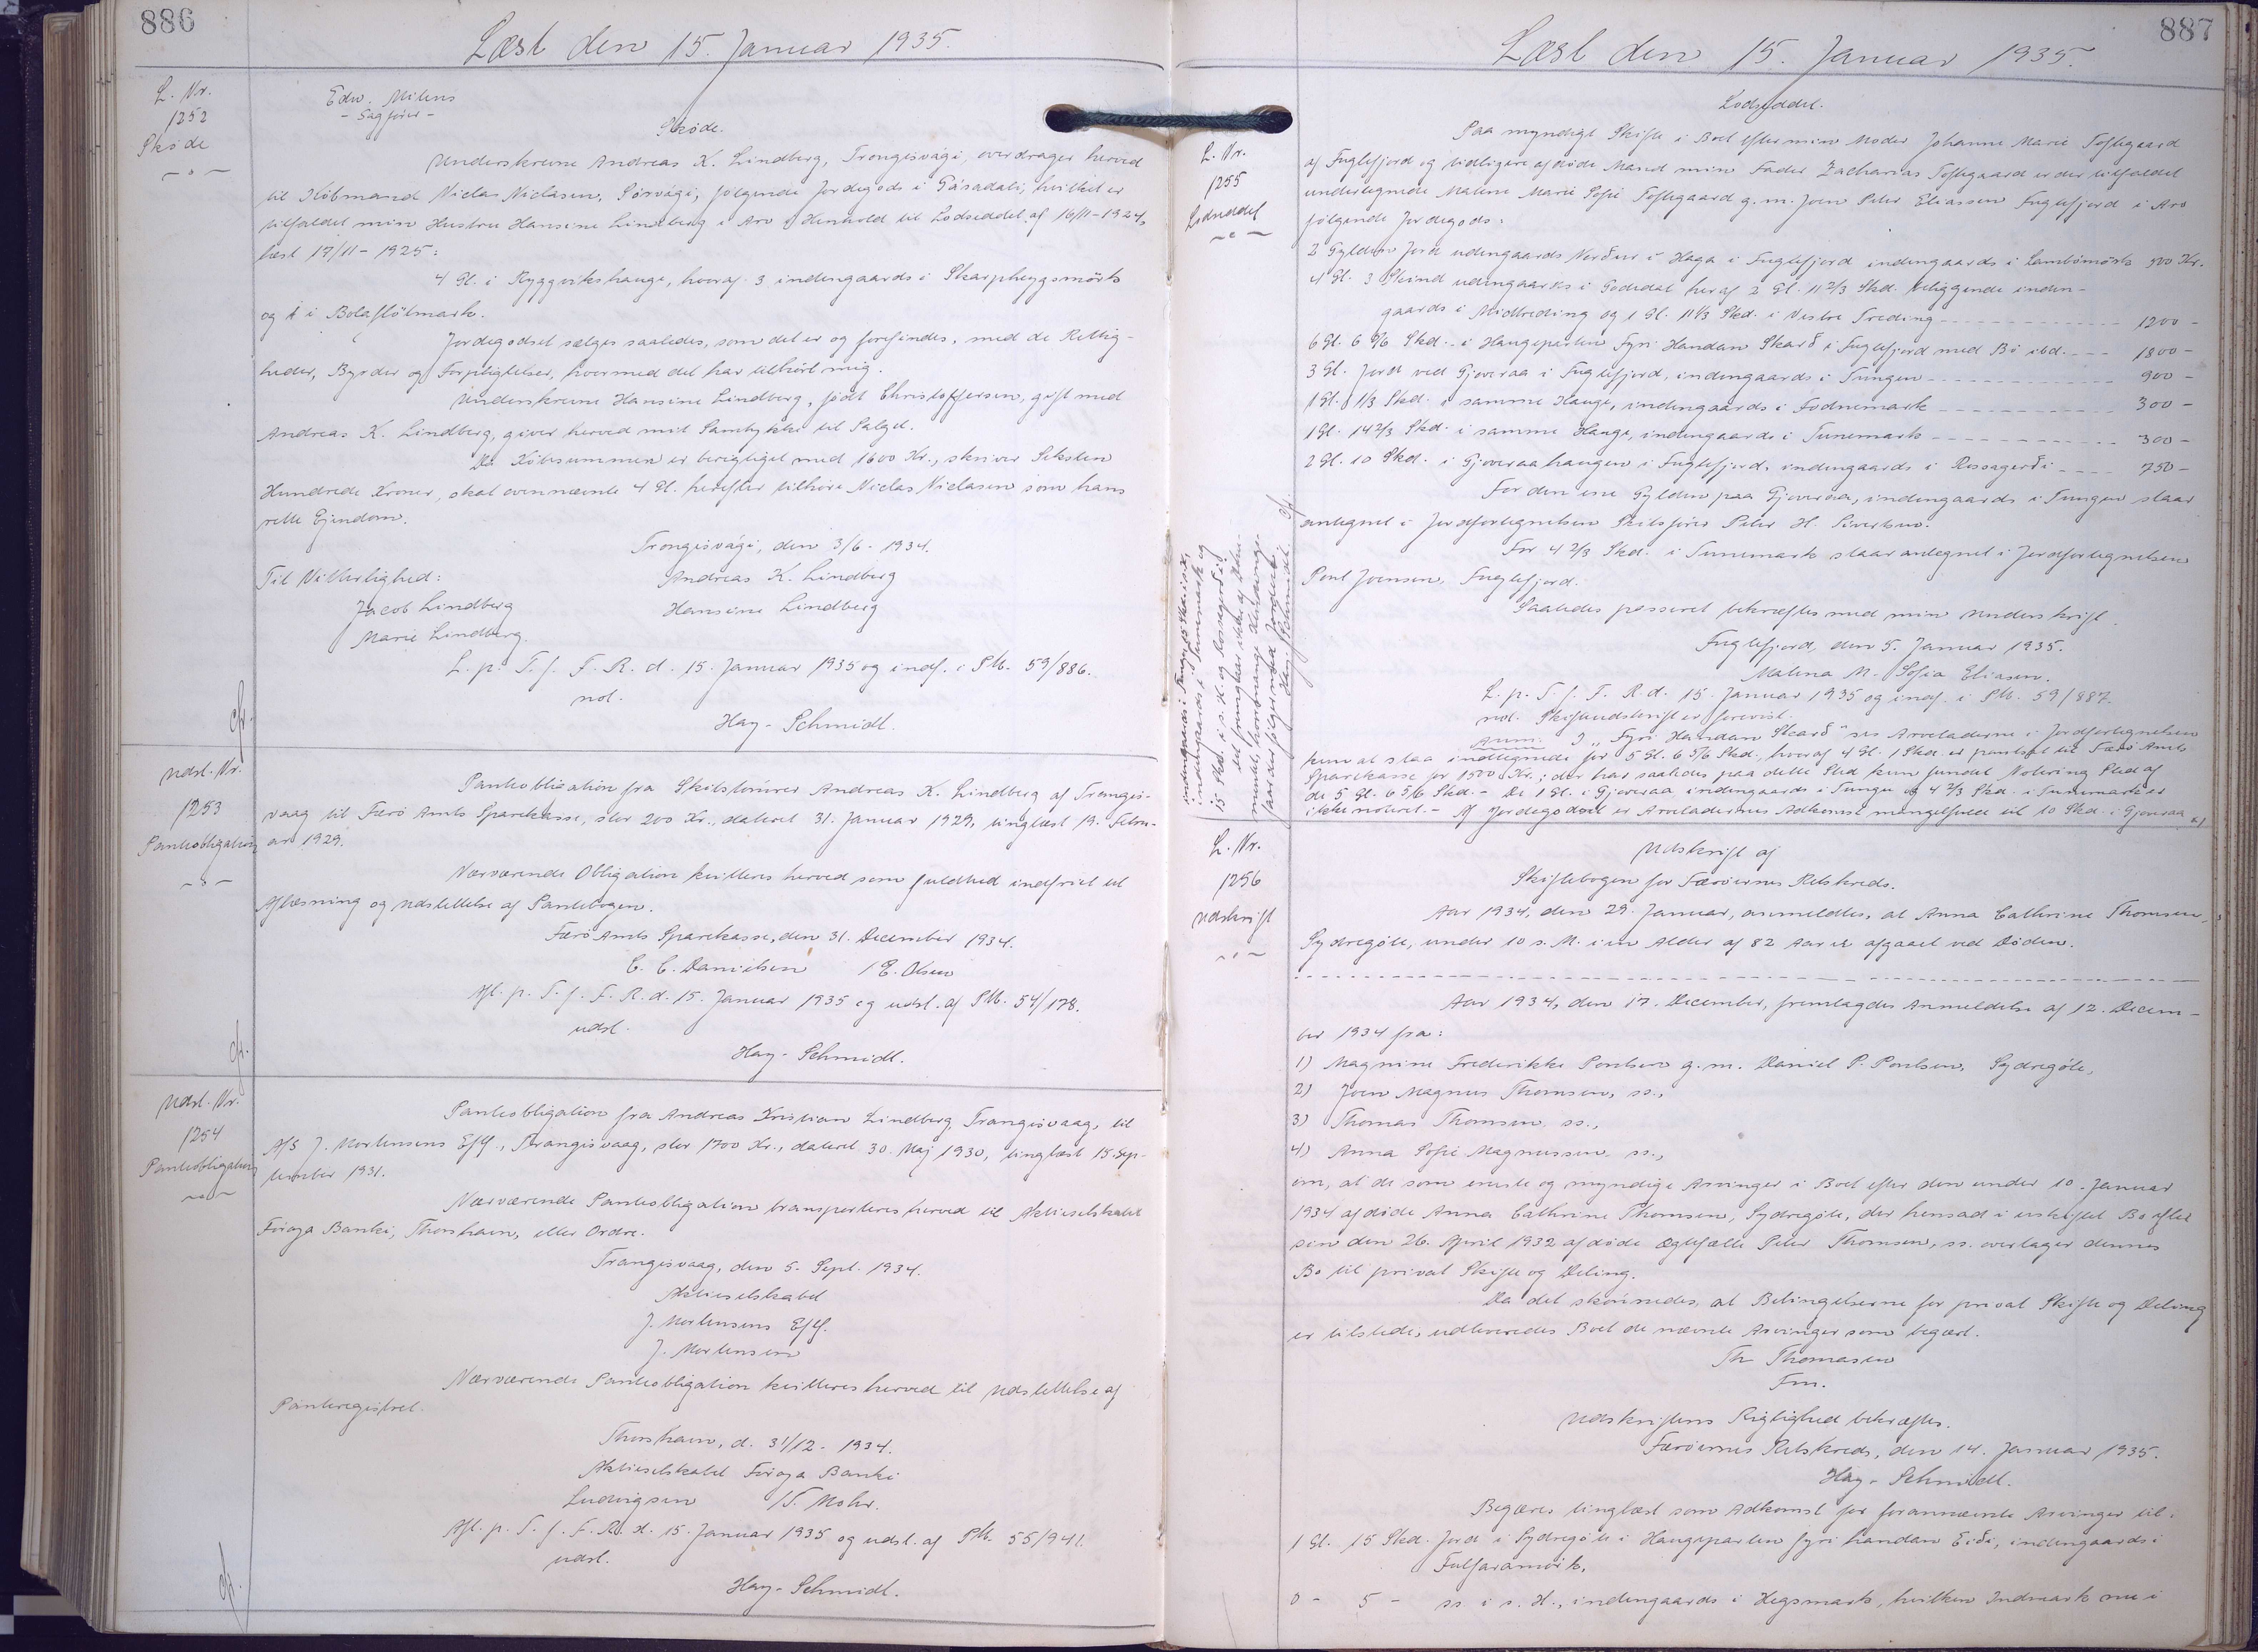 886
Læst den 15. Januar 1935.
L. Nr.
1252
Skøde
Edw. Mitens
- Sagfører -
Skøde.
Underskrevne Andreas K. Lindberg, Trongisvági, overdrager herved
til Købmand Niclas Niclasen, Sörvági, følgende Jordegods i Gásadali, hvilket er
tilfaldet min Hustru Hansine Lindberg i Arv i Henhold til Lodseddel af 16/11-1924,
læst 17/11-1925:
4 Gl. i Ryggvikshauge, hvoraf 3 indengaards i Skarpheygsmörk
og 1 i Bolaflötmark.
Jordegodset sælges saaledes, som det er og forefindes, med de Rettig-
heder, Byrder og Forpligtelser, hvormed det har tilhørt mig.
Underskrevne Hansine Lindberg, født Christoffersen, gift med
Andreas K. Lindberg, giver herved mit Samtykke til Salget.
Da Købesummen er berigtiget med 1600 Kr., skriver Seksten
Hundrede Kroner, skal ovennævnte 4 Gl. herefter tilhøre Niclas Niclasen som hans
rette Ejendom.
Trongisvági, den 3/6-1934.
Til Vitterlighed:
Andreas K. Lindberg
Jacob Lindberg
Hansine Lindberg
Marie Lindberg.
L. p. T. f. F. R. d. 15. Januar 1935 og indf. i PB. 59/886.
not.
Hay-Schmidt.
cfr.
Udsl. Nr.
1253
Panteobligation
Panteobligation fra Skibstømrer Andreas K. Lindberg af Trangis-
vaag til Færø Amts Sparekasse, stor 200 Kr., dateret 31. Januar 1929, tinglæst 19. Febru-
ar 1929.
Nærværende Obligation kvitteres herved som fuldtud indfriet til
Aflæsning og Udslettelse af Pantebogen.
Færø Amts Sparekasse, den 31. December 1934.
C. C. Danielsen / E. Olsen
Afl. p. T. f. F. R. d. 15. Januar 1935 og udsl. af PB. 54/178.
udsl.
Hay-Schmidt.
cfr.
Udsl. Nr.
1254
Panteobligation
Panteobligation fra Andreas Kristian Lindberg, Trangisvaag, til
A/S J. Mortensens Eftf., Trangisvaag, stor 1700 Kr., dateret 30. Maj 1930, tinglæst 15. Sep-
tember 1931.
Nærværende Panteobligation transporteres herved til Aktieselskabet
Føroya Banki, Thorshavn, eller Ordre.
Trangisvaag, den 5. Sept. 1934.
Aktieselskabet
J. Mortensens Eftf.
J. Mortensen
Nærværende Panteobligation kvitteres herved til Udslettelse af
Panteregistret.
Thorshavn, d. 31/12-1934.
Aktieselskabet Føroya Banki
Ludvigsen / T. Mohr.
Afl. p. T. f. F. R. d. 15. Januar 1935 og udsl. af PB. 55/941.
udsl.
Hay-Schmidt.
cfr.
887
Læst den 15. Januar 1935.
L. Nr.
1255
Lodseddel
Lodseddel.
Paa myndigt Skifte i Boet efter min Moder Johanne Marie Toftegaard
af Fuglefjord og tidligere afdøde Mand min Fader Zacharias Toftegaard er der tilfaldet
undertegnede Malene Marie Sofie Toftegaard g. m. Joen Peter Eliassen Fuglefjord i Arv
følgende Jordegods:
2 Gylden Jord udengaards Norður i Haga i Fuglefjord indengaards i Lambömörk 500 Kr.
4 Gl. 3 Skind udengaards i Godedal heraf 2 Gl. 11 2/3 Skd. beliggende inden-
gaards i Midtreding og 1 Gl. 11 1/3 Skd. i Vestre Treding 1200 -
6 Gl. 6 5/6 Skd. i Haugeparten Fyri Handan Skarð i Fuglefjord med Bö ibd. 1800 -
3 Gl. Jord ved Gjoveraa i Fuglefjord, indengaards i Tungen 900 -
1 Gl. 1/3 Skd. i samme Hauge, indengaards i Fodnemark 300 -
1 Gl. 14 2/3 Skd. i samme Hauge, indengaards i Tunemark 300 -
2 Gl. 10 Skd. i Gjoveraahaugen i Fuglefjord, indengaards i Rossagerði 750 -
For den ene Gylden paa Gjoveraa, indengaards i Tungen staar
antegnet i Jordfortegnelsen Skibsfører Peter H. Sivertsen.
For 4 2/3 Skd. i Tunemark staar antegnet i Jordfortegnelsen
Poul Joensen, Fuglefjord.
Saaledes passeret bekræftes med min Underskrift.
Fuglefjord, den 5. Januar 1935.
Malena M. Sofia Eliasen.
L. p. T. f. F. R. d. 15. Januar 1935 og indf. i PB. 59/887.
not. Skifteudskrift er forevist.
Anm: I "Fyri Handan Skarð" ses Arveladerne i Jordfortegnelsen
kun at staa indtegnede for 5 Gl. 6 5/6 Skd., hvoraf 4 Gl. 1 Skd. er pantsat til Færø Amts
Sparekasse for 1500 Kr.; der har saaledes paa dette Sted kun fundet Notering Sted af
de 5 Gl. 6 5/6 Skd. - De 1 Gl. i Gjoveraa indengaards i Tunge og 4 2/3 Skd. i Tunemark er
ikke noteret. - Af Jordegodset er Arveladernes Adkomst mangelfuld til 10 Skd. i Gjoveraa x)
15 Skd. i s. H. og Rossagerði
Hay-Schmidt.
cfr.
L. Nr.
1256
Udskrift
Udskrift af
Skiftebogen for Færøernes Retskreds.
Aar 1934, den 29. Januar, anmeldtes, at Anna Cathrine Thomsen,
Sydregöte, under 10 s. M. i en Alder af 82 Aar er afgaaet ved Døden.
Aar 1934, den 17. December, fremlagdes Anmeldelse af 12. Decem-
ber 1934 fra:
1) Magnine Frederikke Poulsen g. m. Daniel P. Poulsen, Sydregöte,
2) Joen Magnus Thomsen, ss.,
3) Thomas Thomsen, ss.,
4) Anna Sofie Magnussen, ss.,
om, at de som eneste og myndige Arvinger i Boet efter den under 10. Januar
1934 afdøde Anna Cathrine Thomsen, Sydregöte, der hensad i uskiftet Bo efter
sin den 26. April 1932 afdøde Ægtefælle Peter Thomsen, ss. overtager dennes
Bo til privat Skifte og Deling.
Da det skønnedes, at Betingelserne for privat Skifte og Deling
er tilstede, udleveredes Boet de nævnte Arvinger som begært.
Th Thomasen
Fm.
Udskriftens Rigtighed bekræftes.
Færøernes Retskreds, den 14. Januar 1935.
Hay-Schmidt.
Begæres tinglæst som Adkomst for forannævnte Arvinger til:
1 Gl. 15 Skd. Jord i Sydregöte i Haugeparten fyri handan Eiði, indengaards i
Fulfaramörk,
0 - 5 - ss. i s. H., indengaards i Hegsmark, hvilken Indmark nu i